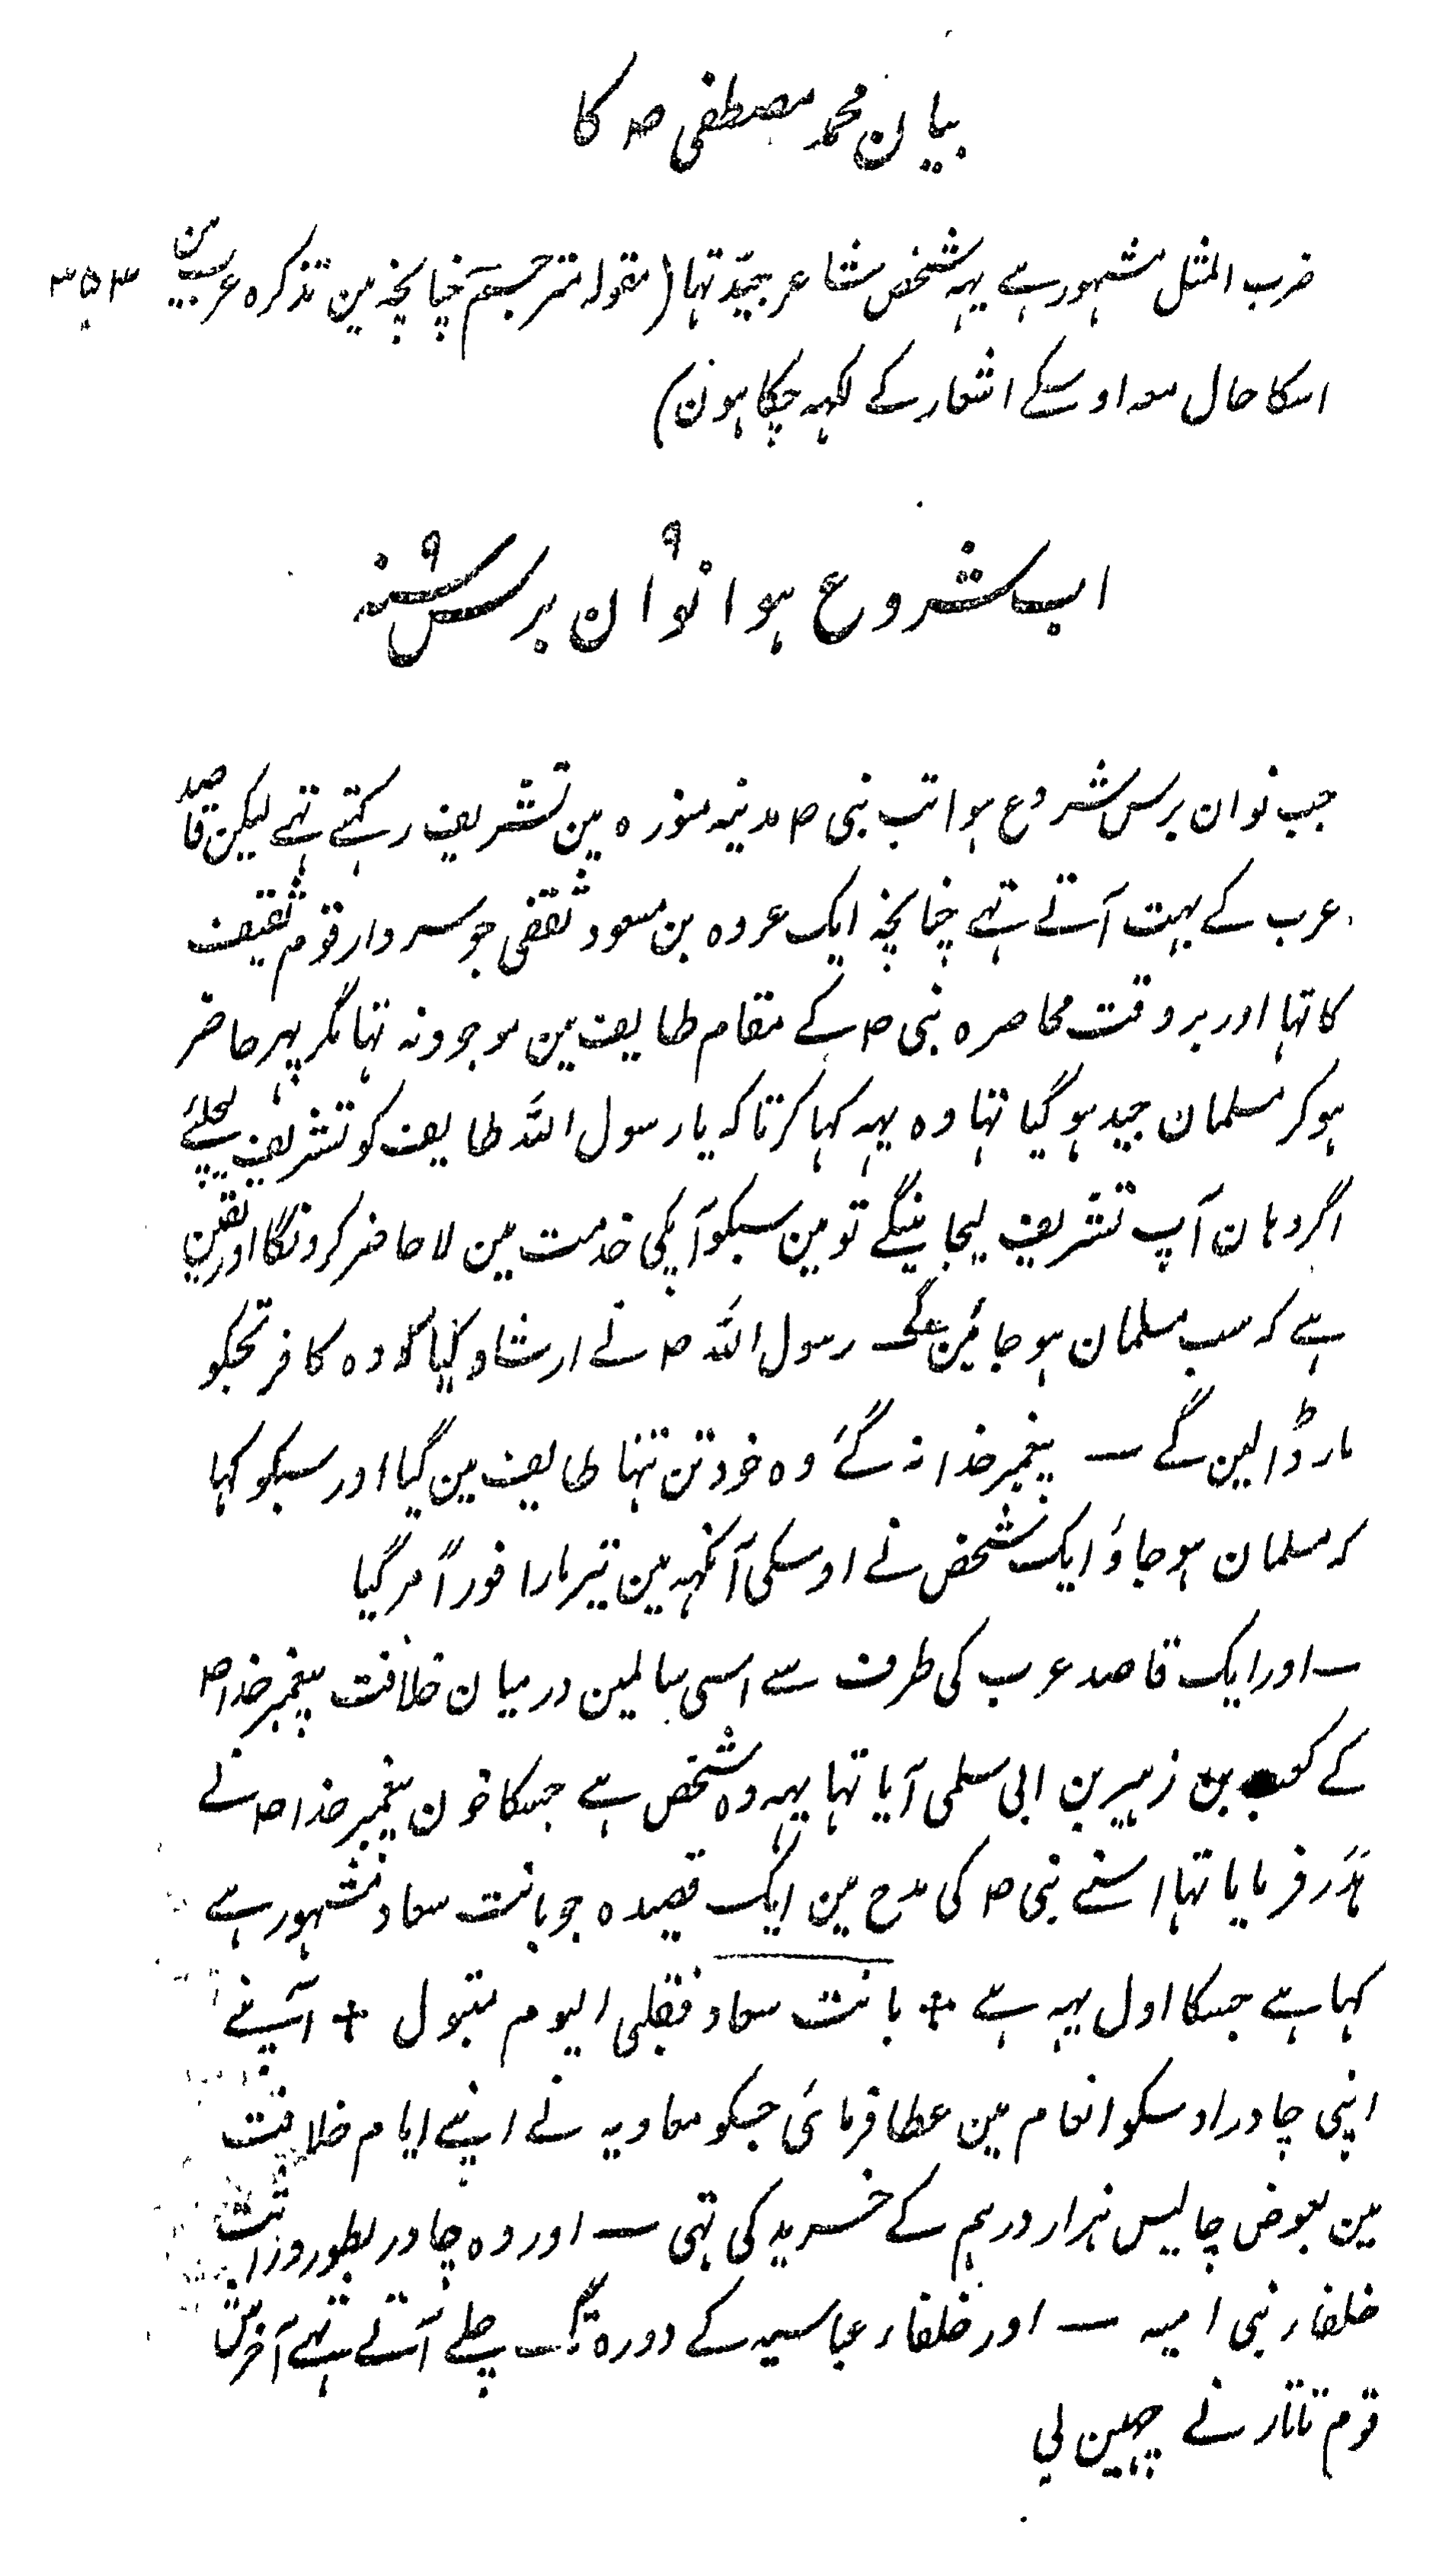 بیان محمد مصطفی ص کا
ضرب المثل مشہور ہے یہہ شخص شاعر جیّد تہا (مقولہ مترجم چنانچہ مین تذکرہ عرب مین ۳۵۳
اسکا حال معہ اوسکے اشعار کے لکہہ چکا ہون)
اب شروع ہوا نوان برس سنہ ۹
جب نوان برس شروع ہوا تب نبی ص مدینہ منورہ مین تشریف رکہتے تہے لیکن قاصد
عرب کے بہت آتے تہے چنانچہ ایک عروہ بن مسعود ثقفی جو سردار قوم ثقیف
کا تہا اور بروقت محاصرہ نبی ص کے مقام طایف مین موجود نہ تہا مگر پہر حاضر
ہوکر مسلمان جید ہو گیا تہا وہ یہہ کہا کرتا کہ یا رسول اللہ طایف کو تشریف لیچلئے
اگر وہان آپ تشریف لیجاینگے تو مین سبکو آپکی خدمت مین لا حاضر کرونگا اور یقین
ہے کہ سب مسلمان ہو جائین گے رسول اللہ ص نے ارشاد کیا کہ وہ کافر تجکو
مار ڈالین گے ۔ پیغمبر خدا نہ گئے وہ خود تن تنہا طایف مین گیا اور سبکو کہا
کہ مسلمان ہو جاؤ ایک شخص نے اوسکی آنکہہ مین تیر مارا فوراً مر گیا
۔ اور ایک قاصد عرب کی طرف سے اسی سالمین درمیان خلافت پیغمبر خدا ص
کے کعب بن زہیر بن ابی سلمی آیا تہا یہہ وہ شخص ہے جسکا خون پیغمبر خدا ص نے
ہَدَر فرمایا تہا اسنے نبی ص کی مدح مین ایک قصیدہ جو بانت سعاد مشہور ہے
کہا ہے جسکا اول یہہ ہے + بانت سعاد فقلبی الیوم متبول + آپنے
اپنی چادر اوسکو انعام مین عطا فرمائی جسکو معاویہ نے اپنے ایام خلافت
مین بعوض چالیس ہزار درہم کے خرید کی تہی ۔ اور وہ چادر بطور وراثت
خلفاء بنی امیہ ۔ اور خلفاء عباسیہ کے دورہ تک چلے آتے تہے آخرش
قوم تاتار نے چہین لی